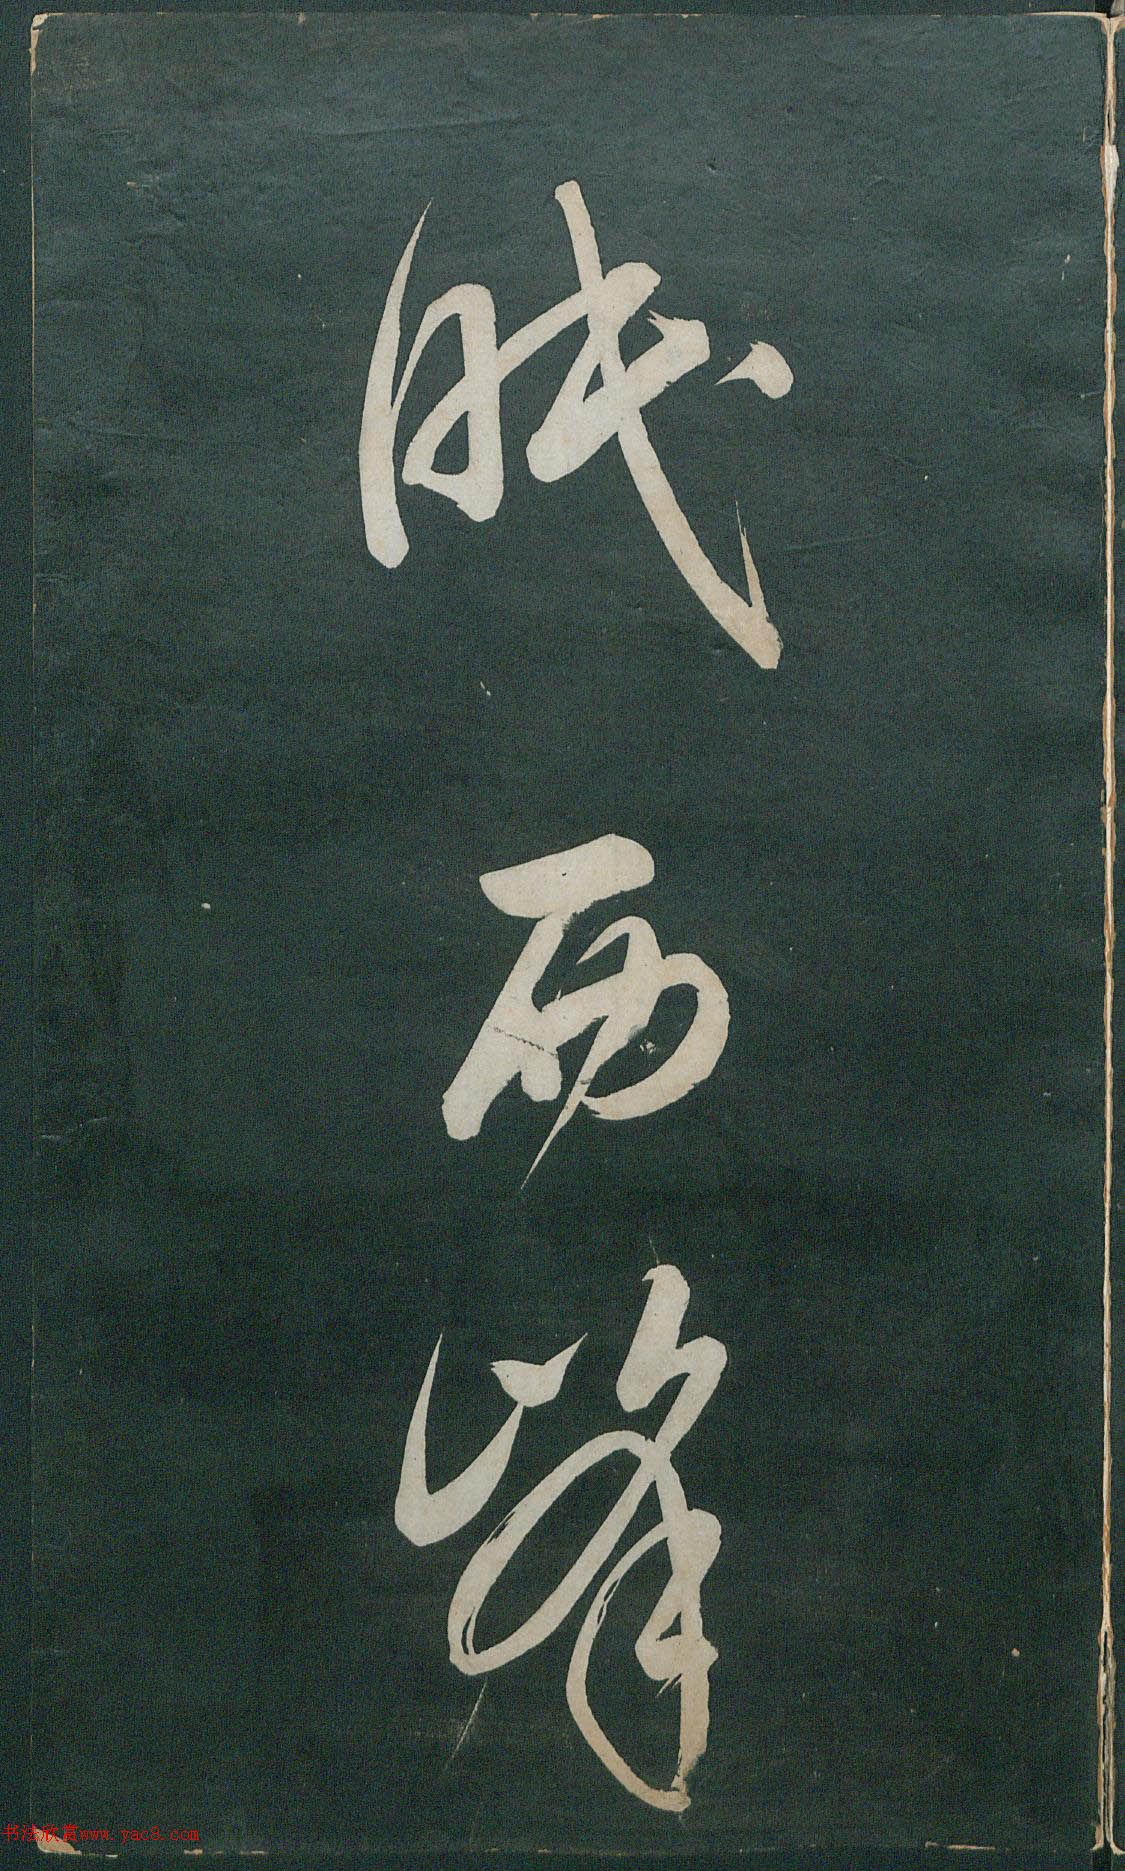 西峰
书法欣赏www.yac8.com